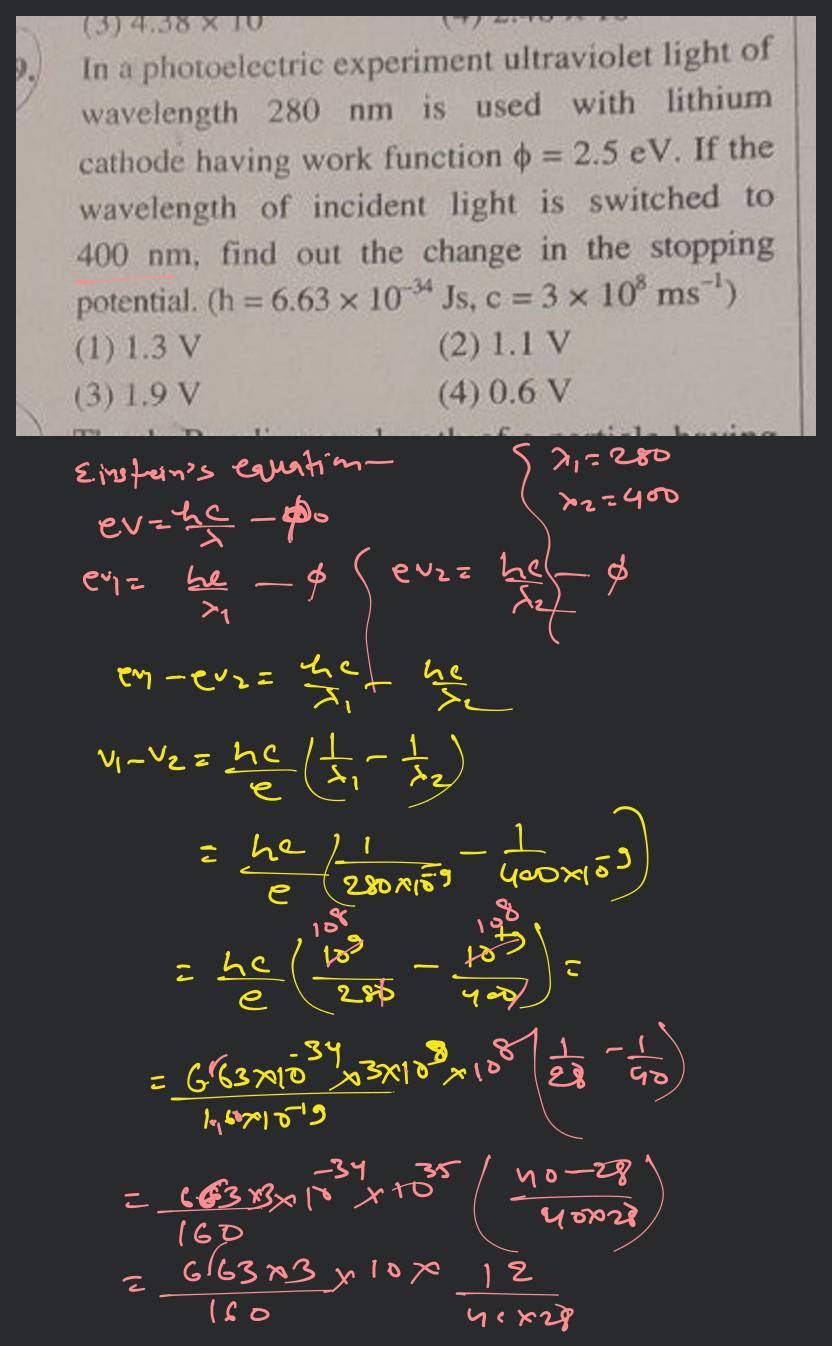 (3) 4.38 × 10
9.
In a photoelectric experiment ultraviolet light of
wavelength 280 nm is used with lithium
cathode having work function ϕ = 2.5 eV. If the
wavelength of incident light is switched to
400 nm, find out the change in the stopping
potential. (h = 6.63 × 10⁻³⁴ Js, c = 3 × 10⁸ ms⁻¹)
(1) 1.3 V (2) 1.1 V
(3) 1.9 V (4) 0.6 V
Einstein's equation—
λ₁ = 280
λ₂ = 400
ev = hc/λ - ϕ₀
ev₁ = hc/λ₁ - ϕ
ev₂ = hc/λ₂ - ϕ
ev₁ - ev₂ = hc/λ₁ - hc/λ₂
v₁ - v₂ = hc/e (1/λ₁ - 1/λ₂)
= hc/e (1/280×10⁻⁹ - 1/400×10⁻⁹)
= hc/e (10⁹/280 - 10⁹/400) =
10⁸ 10⁸
= 6.63×10⁻³⁴×3×10⁸/1.60×10⁻¹⁹ × 10⁸ (1/28 - 1/40)
= 663×3×10⁻³⁴/160 × 10³⁵ (40-28/40×28)
= 663×3/160 × 10 × 12/40×28